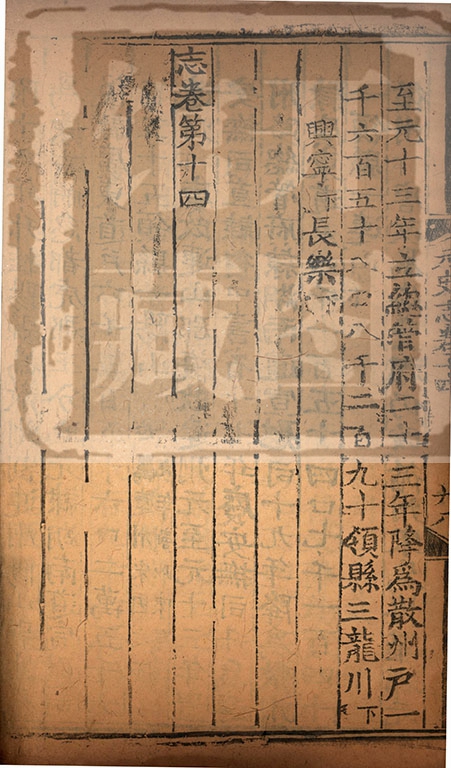 至元十三年立總管府二十三年降爲散州戶一
千六百五十八口八千二百九十領縣三龍川下
興寧下長樂下
志卷第十四